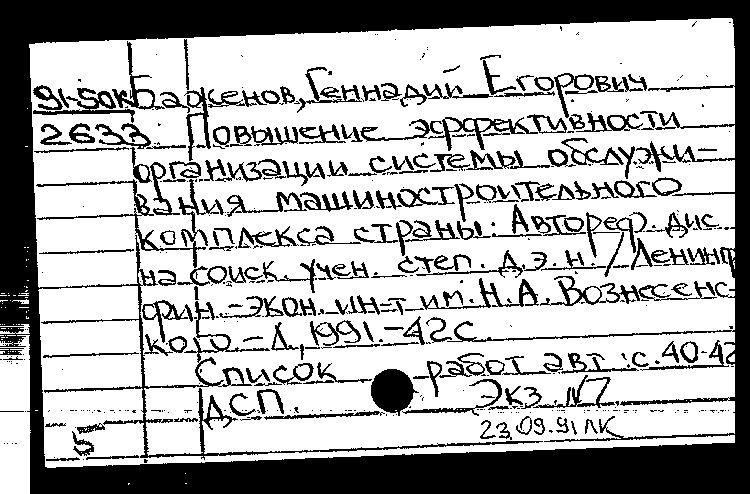 91-50к Баженов, Геннадий Егорович
2633 Повышение эффективности
организации системы обслужи-
вания машиностроительного
комплекса страны: Автореф. дис
на соиск. учен. степ. д.э.н. / Ленингр
фин.-экон. ин-т им. Н.А. Вознесенс-
кого - Л, 1991. - 42 с.
Список работ авт.: с. 40-42
ДСП. Экз. №7
5 23.09.91 ЛК